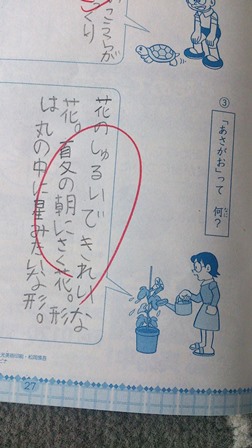 こうらが
くり
③
「あさがお」って 何?
なに
花のしゅるいできれいな
花。夏の朝にさく花。形
は丸の中に星みたいな形。
27